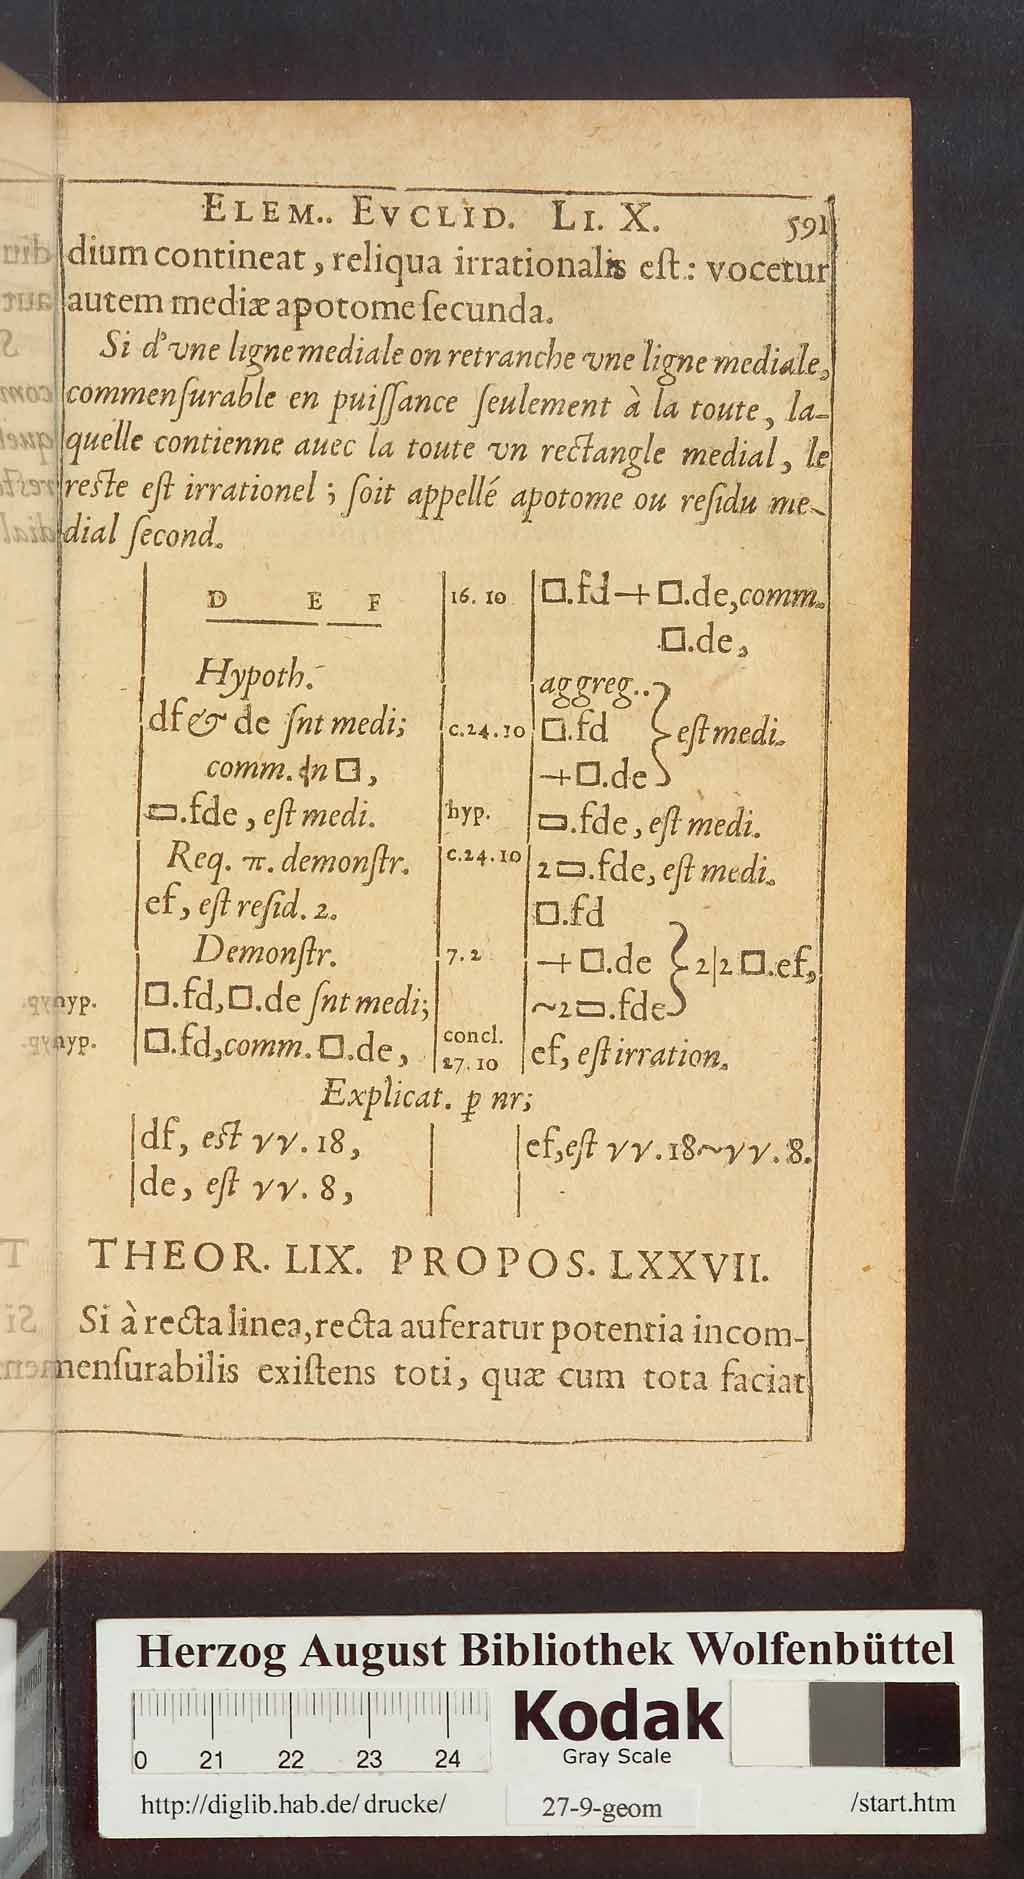 ELEM.. EVCLID. LI. X. 591
dium contineat, reliqua irrationalis est: vocetur
autem mediæ apotome secunda.
Si d'vne ligne mediale on retranche vne ligne mediale,
commensurable en puissance seulement à la toute, la-
quelle contienne auec la toute vn rectangle medial, le
reste est irrationel; soit appellé apotome ou residu me-
dial second.
D E F
Hypoth.
df & de snt medi;
comm. in □,
▭.fde, est medi.
Req. π. demonstr.
ef, est resid. 2.
Demonstr.
hyp. □.fd, □.de snt medi;
hyp. □.fd, comm. □.de,
16. 10 □.fd + □.de, comm.
□.de,
aggreg..
c.24.10 □.fd } est medi.
+ □.de
hyp. ▭.fde, est medi.
c.24.10 2▭.fde, est medi.
□.fd
7. 2 + □.de } 2|2 □.ef,
~2▭.fde
concl.
27. 10 ef, est irration.
Explicat. ꝑ nr;
df, est √√. 18,
de, est √√. 8,
ef, est √√. 18~√√. 8.
THEOR. LIX. PROPOS. LXXVII.
Si à recta linea, recta auferatur potentia incom-
mensurabilis existens toti, quæ cum tota faciat
Herzog August Bibliothek Wolfenbüttel
0 21 22 23 24
Kodak
Gray Scale
http://diglib.hab.de/drucke/ 27-9-geom /start.htm